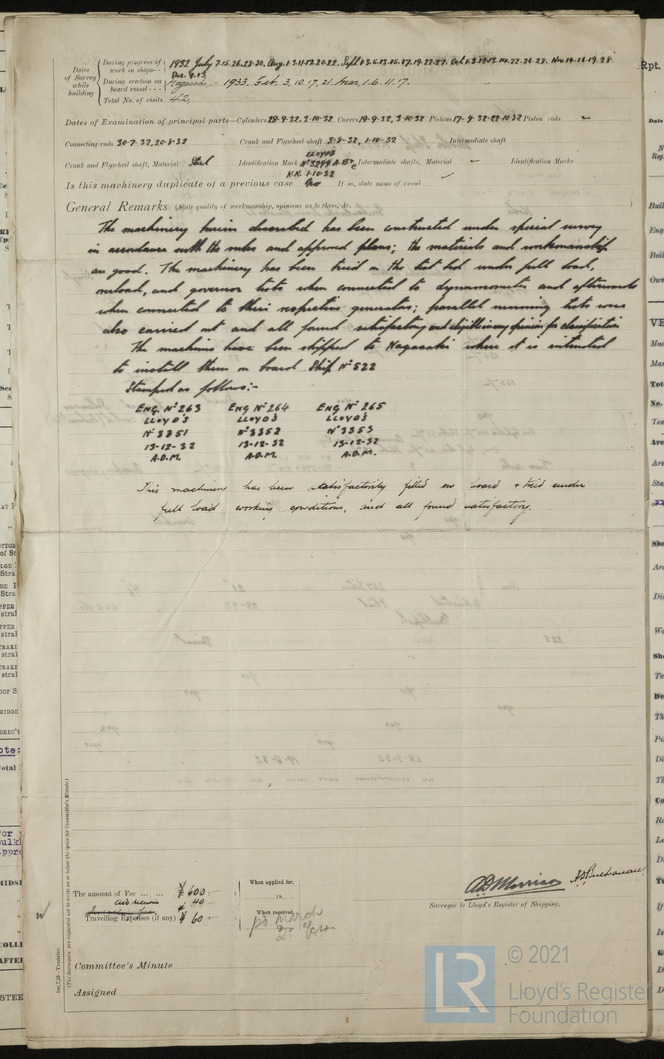 Dates of Survey while building
During progress of work in shops -- 1932 July 7.15.26.28.30. Aug. 1.3.11.12.20.22. Sept 1.3.5.13.15.17.19.22.27. Oct 1.3.12.13.14.22.26.28. Nov 14.16.19.28.
Dec. 9.13.
During erection on board vessel --- Nagasaki - 1933. Feb. 3, 10, 17, 21. Mar. 1. 6. 11. 17.
Total No. of visits 42.
Dates of Examination of principal parts—Cylinders 28-9-32, 3-10-32 Covers 19-9-32, 3-10-32 Pistons 17-9-32 22-10-32 Piston rods -
Connecting rods 30-7-32, 20-8-32 Crank and Flywheel shaft 3-8-32, 1-10-32 Intermediate shaft
Crank and Flywheel shaft, Material Steel Identification Mark LLOYD'S Intermediate shafts, Material - Identification Marks -
K.K. 1-10-32
Is this machinery duplicate of a previous case No If so, state name of vessel
General Remarks (State quality of workmanship, opinions as to class, &c.
The machinery herein described has been constructed under special survey
in accordance with the rules and approved plans; the materials and workmanship
are good. The machinery has been tried on the test bed under full load,
overload, and governor tests when connected to dynamometer and afterwards
when connected to their respective generators; parallel running tests were
also carried out and all found satisfactory and eligible in my opinion for classification
The machines have been shipped to Nagasaki where it is intended
to install them on board Ship No 522
Stamped as follows:-
ENG No 263 ENG No 264 ENG No 265
LLOYD'S LLOYD'S LLOYD'S
No 3351 No 3352 No 3353
13-12-32 13-12-32 13-12-32
A.D.M. A.D.M. A.D.M.
This machinery has been satisfactorily fitted on board & tried under
full load working conditions, and all found satisfactory.
The amount of Fee ... ... ¥ 600:
¥ 40
Travelling Expenses (if any) ¥ 60
When applied for,
19
When received,
March
A D Morrison
Surveyor to Lloyd's Register of Shipping.
Committee's Minute
Assigned
(The Surveyors are requested not to write on or below the space for Committee's Minute.)
© 2021
LR
Lloyd's Register
Foundation